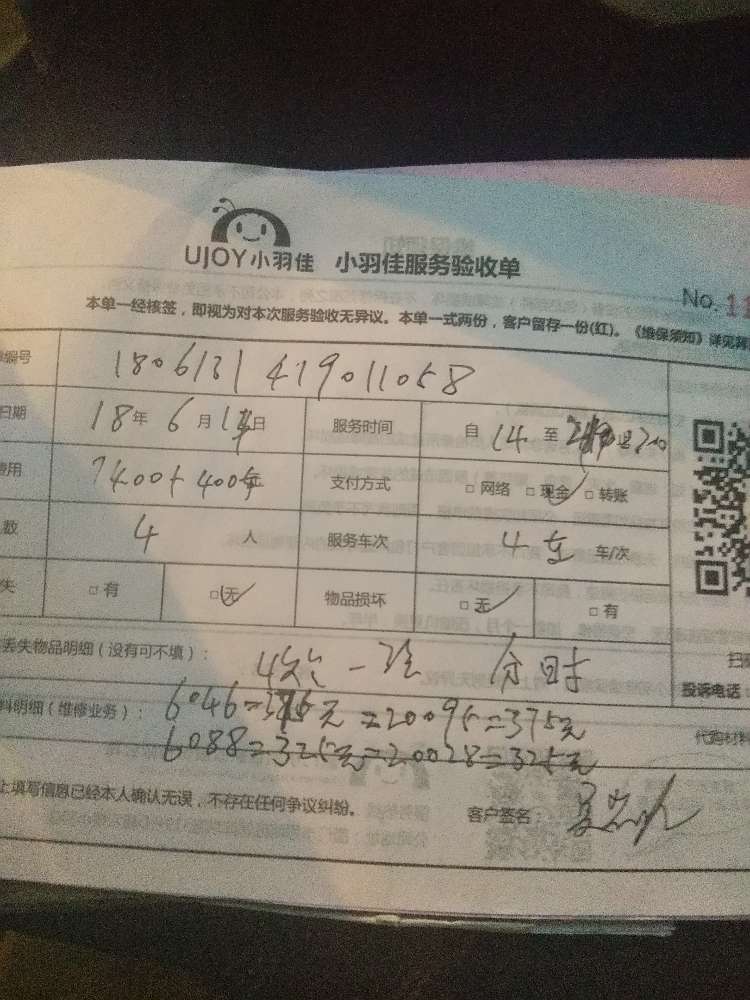 UJOY小羽佳 小羽佳服务验收单
No. 11
本单一经核签，即视为对本次服务验收无异议。本单一式两份，客户留存一份(红)。《维保须知》详见背
编号 1806131419011058
日期 18年 6月 14日 服务时间 自 14 至
费用 1400+400车 支付方式 □ 网络 □ 现金 □ 转账
数 4 人 服务车次 4车 车/次
失 □ 有 □ 无 物品损坏 □ 无 □ 有
丢失物品明细（没有可不填）： 一 分时
扫
投诉电话：
料明细（维修业务）： 6046=375元 =20095=375元
6088=325元=20028=325元
代购材料
上填写信息已经本人确认无误，不存在任何争议纠纷。 客户签名：